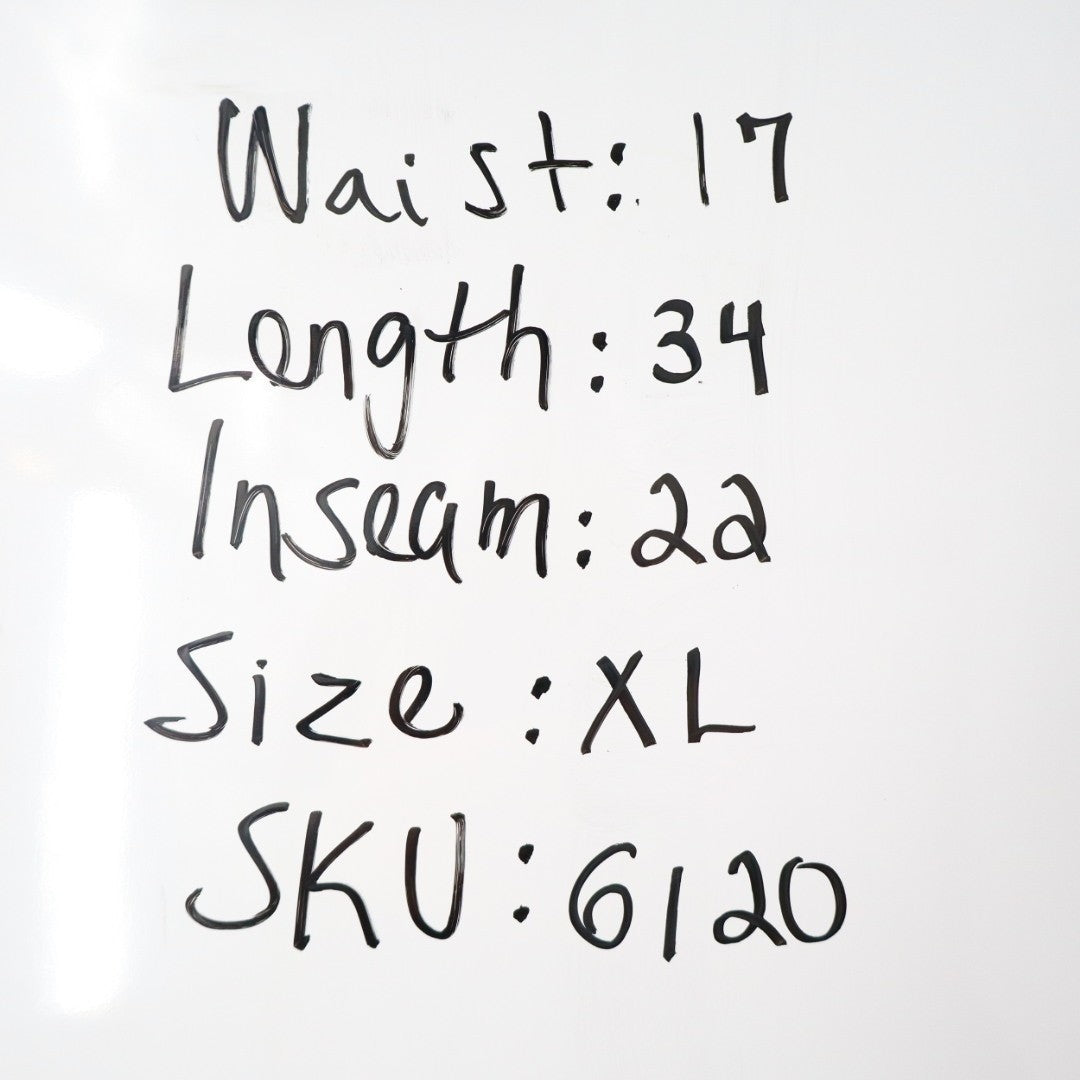 Waist: 17
Length: 34
Inseam: 22
Size: XL
SKU: 6120